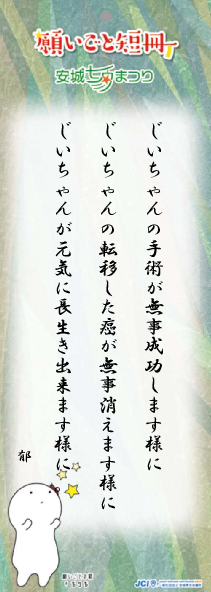 願いごと短冊
安城七夕まつり
じいちゃんの手術が無事成功します様に
じいちゃんの転移した癌が無事消えます様に
じいちゃんが元気に長生き出来ます様に
郁
JCI